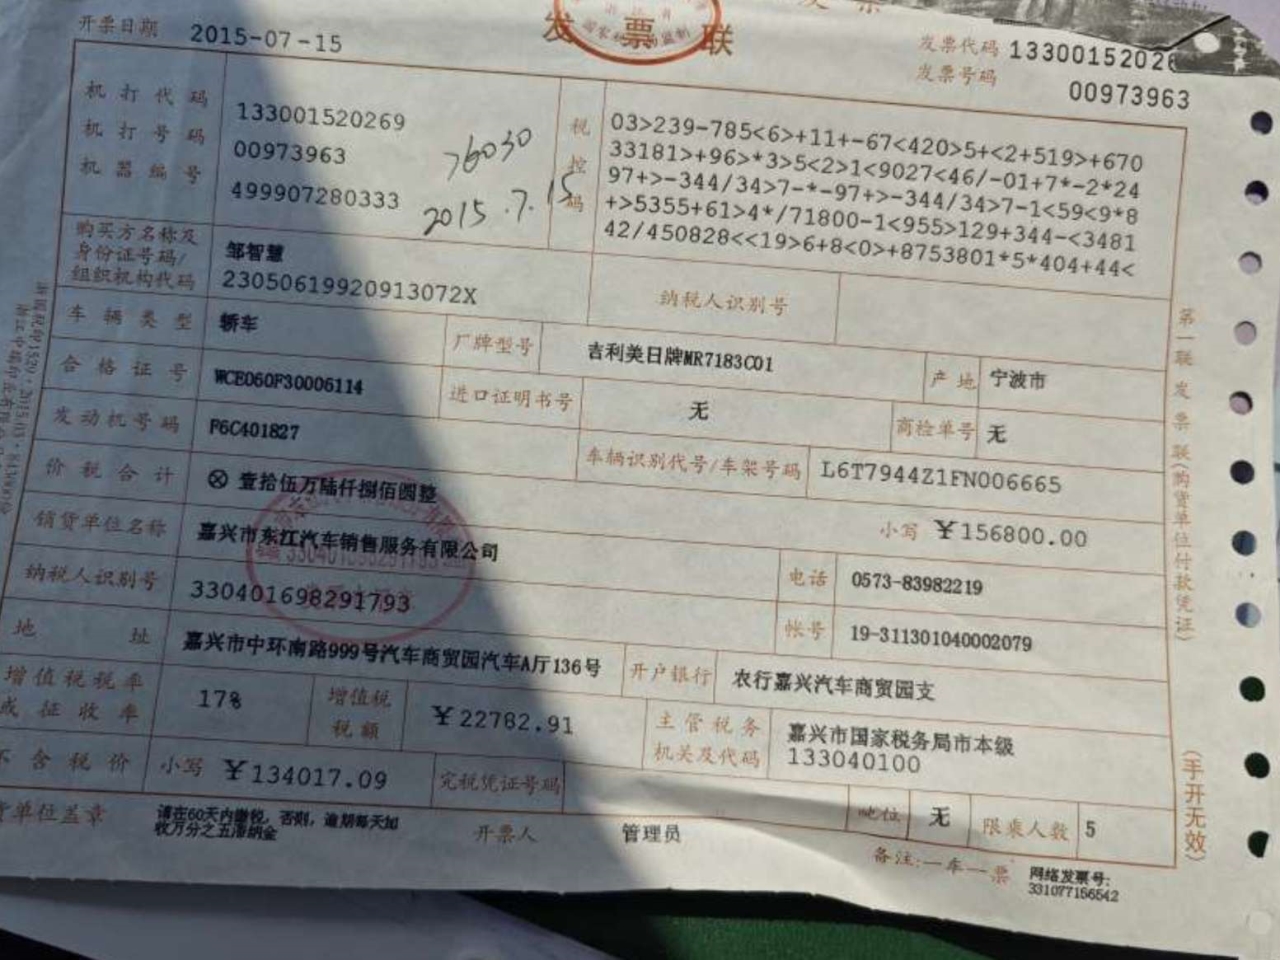 发票联
开票日期 2015-07-15
发票代码 13300152026
发票号码 00973963
机打代码 133001520269
机打号码 00973963
机器编号 499907280333
76030
2015.7.15
税控码
03>239-785<6>+11+-67<420>5+<2+519>+670
33181>+96>*3>5<2>1<9027<46/-01+7*-2*24
97+>-344/34>7-*-97+>-344/34>7-1<59<9*8
+>5355+61>4*/71800-1<955>129+344-<3481
42/450828<<19>6+8<0>+8753801*5*404+44<
购买方名称及身份证号码/组织机构代码
邹智慧
23050619920913072X
纳税人识别号
车辆类型 轿车 厂牌型号 吉利美日牌MR7183C01 产地 宁波市
合格证号 WCE060F30006114 进口证明书号 无 商检单号 无
发动机号码 F6C401827 车辆识别代号/车架号码 L6T7944Z1FN006665
价税合计 ⊗ 壹拾伍万陆仟捌佰圆整 小写 ￥156800.00
销货单位名称 嘉兴市东江汽车销售服务有限公司 电话 0573-83982219
纳税人识别号 330401698291793 帐号 19-311301040002079
地址 嘉兴市中环南路999号汽车商贸园汽车A厅136号 开户银行 农行嘉兴汽车商贸园支
增值税税率或征收率 17% 增值税税额 ￥22782.91 主管税务机关及代码 嘉兴市国家税务局市本级 133040100
不含税价 小写 ￥134017.09 完税凭证号码 吨位 无 限乘人数 5
货单位盖章 请在60天内缴税，否则，逾期每天加收万分之五滞纳金 开票人 管理员 备注:一车一票
网络发票号:
331077156542
第一联 发票联(购货单位付款凭证)
(手开无效)